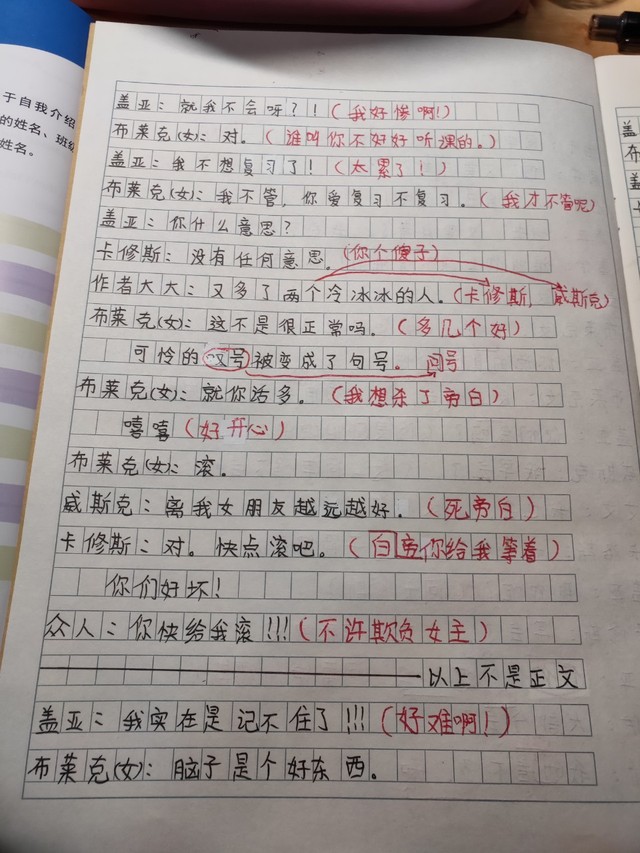 于自我介绍
的姓名、班级
姓名。
盖亚：就我不会呀？！（我好惨啊！）
布莱克(女)：对。（谁叫你不好好听课的。）
盖亚：我不想复习了！（太累了！）
布莱克(女)：我不管，你爱复习不复习。（我才不管呢）
盖亚：你什么意思？
卡修斯：没有任何意思。（你个傻子）
作者大大：又多了两个冷冰冰的人。（卡修斯，威斯克）
布莱克(女)：这不是很正常吗。（多几个好）
可怜的叹号被变成了句号。问号
布莱克(女)：就你话多。（我想杀了旁白）
嘻嘻（好开心）
布莱克(女)：滚。
威斯克：离我女朋友越远越好。（死旁白）
卡修斯：对。快点滚吧。（白旁你给我等着）
你们好坏！
众人：你快给我滚！！！（不许欺负女主）
以上不是正文
盖亚：我实在是记不住了！！！（好难啊！）
布莱克(女)：脑子是个好东西。